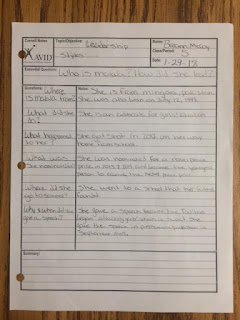 Cornell Notes
Topic/Objective:
Leadership
Styles
Name:
Class/Period:
5
Date:
1-29-18
AVID
Essential Question:
Who is malala? How did she lead?
Questions:
Notes:
Where
is malala from?
She is from mingora, pakistan
She was born on July 12, 1997.
What did she
do?
She
What happened
to her?
She got shot in 2012 on her way
home from school.
What was
She nominated for?
She was nominated for a nobel peace
prize in 2013 and became the youngest
person to receive the nobel
Where did she
go to school?
She went to a school that her father
founded.
Why & when did she
give a speech?
She gave a speech because the Taliban
attacking girls schools in swat. She
gave the speech in peshawar, pakistan in
September
Summary: